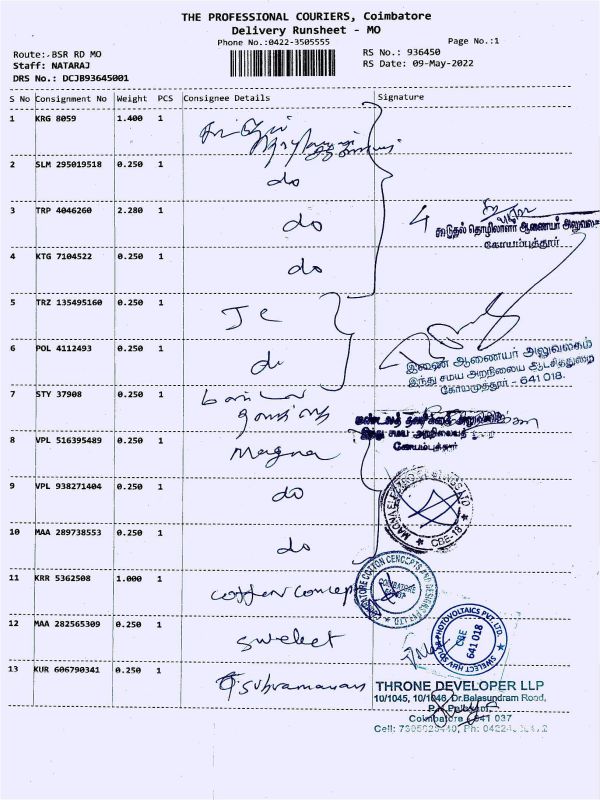 THE PROFESSIONAL COURIERS, Coimbatore
Delivery Runsheet - MO
Phone No.:0422-3505555
Page No.:1
Route:- BSR RD MO
RS No.: 936450
Staff: NATARAJ
RS Date: 09-May-2022
DRS No.: DCJB93645001
S No Consignment No Weight PCS Consignee Details Signature
1 KRG 8059 1.400 1
2 SLM 295019518 0.250 1 do
3 TRP 4046260 2.280 1 do
கூடுதல் தொழிலாளர் ஆணையர் அலுவலகம்
கோயம்புத்தூர்
4 KTG 7104522 0.250 1 do
5 TRZ 135495160 0.250 1 J C
6 POL 4112493 0.250 1 do
இணை ஆணையர் அலுவலகம்
இந்து சமய அறநிலைய ஆட்சித்துறை
கோயமுத்தூர் - 641 018.
7 STY 37908 0.250 1
இந்து சமய அறநிலையத்
கோயம்புத்தூர்
8 VPL 516395489 0.250 1 Magna
9 VPL 938271404 0.250 1 do
CBE-18
10 MAA 289738553 0.250 1 do
11 KRR 5362508 1.000 1 cotton concept
COIMBATORE COTTON CONCEPTS AND DESIGNS
12 MAA 282565309 0.250 1 swelect
SWELECT HHV SOLAR PHOTOVOLTAICS PVT. LTD.
CBE
641 018
13 KUR 606790341 0.250 1 subramanian
THRONE DEVELOPER LLP
10/1045, 10/1046, Dr.Balasundram Road,
Coimbatore 641 037